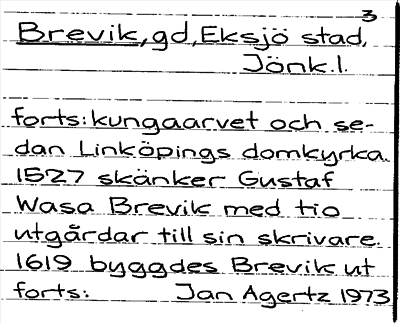 3
Brevik, gd, Eksjö stad,
Jönk.l.
forts: kungaarvet och se-
dan Linköpings domkyrka.
1527 skänker Gustaf
Wasa Brevik med tio
utgårdar till sin skrivare.
1619 byggdes Brevik ut
forts: Jan Agertz 1973